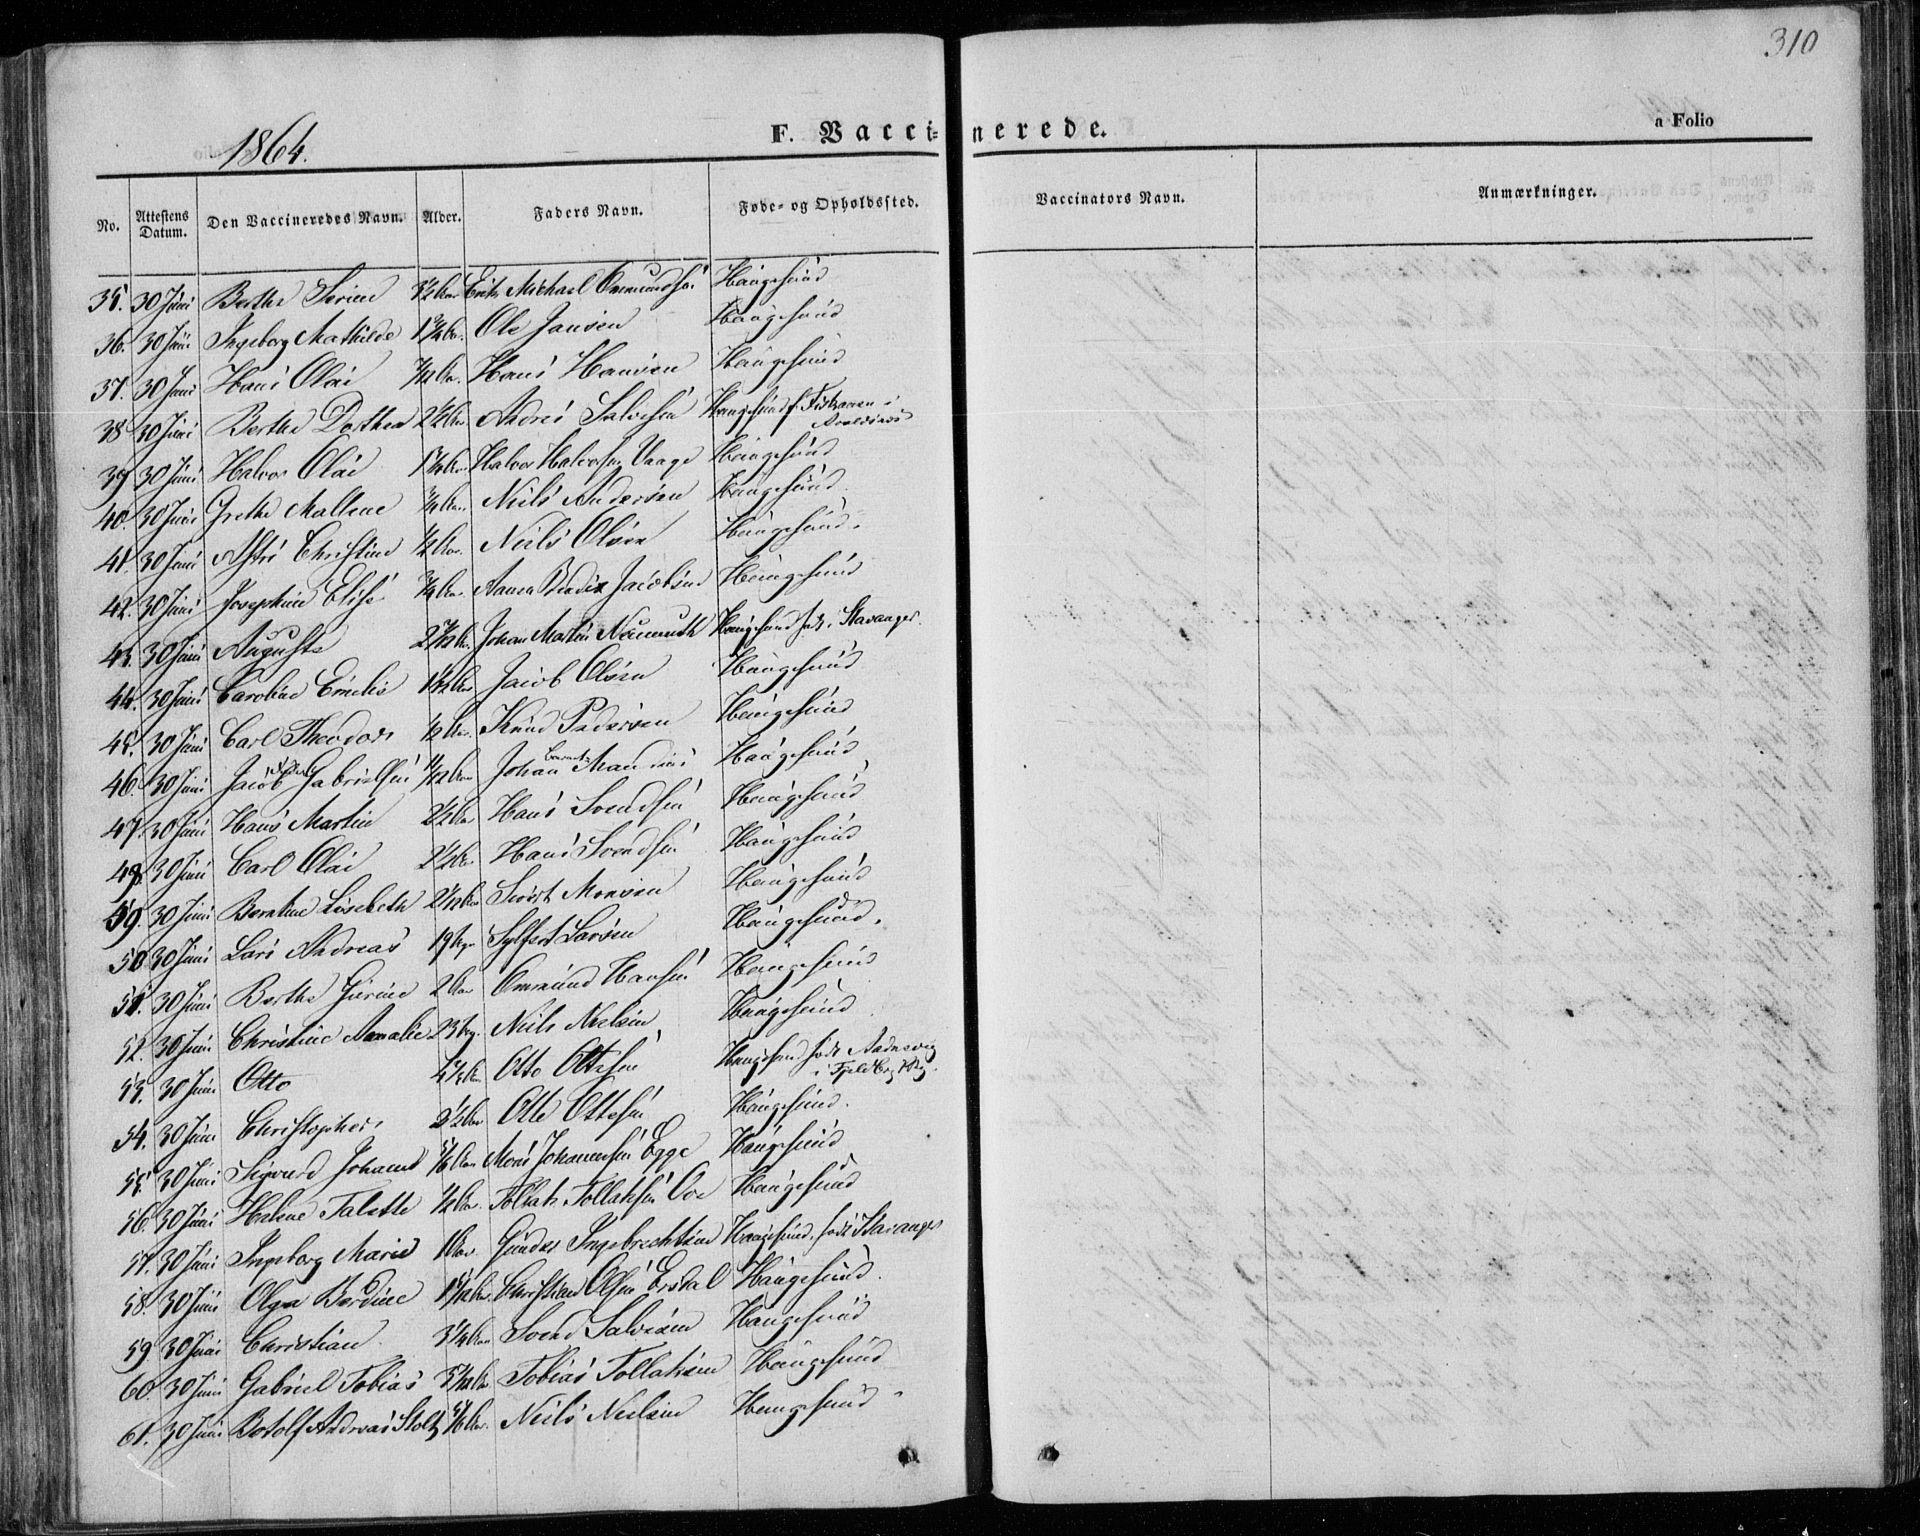 310
1864.
F. Vaccinerede.
a Folio
No. Attestens Datum. Den Vaccineredes Navn. Alder. Faders Navn. Føde- og Opholdssted. Vaccinators Navn. Anmærkninger.
35. 30 Juni Berthe Serine Michael Ommundsen Haugesund
36. 30 Juni Ingeborg Mathilde 1 3/4 Aar. Ole Jansen Haugesund
37. 30 Juni Hans Olai 7/12 Ar. Hans Hansen Haugesund
38 30 Juni Berthe Dorthea 2 1/2 Aar Andres Salvesen Haugesund f. Fiskaaen i Avaldsnæs
39 30 Juni Halvor Olai Halvor Halvorsen Vaage Haugesund
40. 30 Juni Grethe Mallene 3/4 Aar. Niels Andersen Haugesund.
41. 30 Juni Astri Christine 1/2 Aar. Niels Olsen Haugesund.
42. 30 Juni Josephine Elise 3/4 Aar. Jacobsen Haugesund
43. 30 Juni Auguste Johan Martin Naumuth Haugesund født i Stavanger.
44. 30 Juni Caroline Emelie Jacob Olsen Haugesund
45. 30 Juni Carl Theodor 1/2 Aar. Knud Pedersen Haugesund
46. 30 Juni Jacob Gabrielsen 11/12 Aar Johan Mandius Haugesund
47. 30 Juni Hans Martin Hans Svendsen Haugesund
48. 30 Juni Carl Olai Hans Svendsen Haugesund
59. 30 Juni Berntine Lisebeth Sivert Monsen Haugesund
50. 30 Juni Lars Andreas 19 Uger Sylfest Larsen Haugesund.
51. 30 Juni Berthe Gurine 2 Aar Ommund Hansen Haugesund
52. 30 Juni Christine Amalie 23 Ug. Niels Nielsen Haugesund.
53. 30 Juni Otto Otto Ottesen Haugesund født i Fjeldberg
54. 30 Juni Christopher 2 1/2 Aar Otto Ottesen Haugesund.
55. 30 Juni Sigvard Johannes 5/6 Aar Mons Johannesen Egge Haugesund
56. 30 Juni Helene Talette 1/2 Aar. Tollak Tollaksen Haugesund
57. 30 Juni Ingeborg Marie 1 Aar. Gunder Ingebrechtsen Haugesund, født i Stavanger
58. 30 Juni Olga Berdine Christian Olsen Ersdal Haugesund.
59. 30 Juni Christian 3 1/4 Aar Svend Salvesen Haugesund
60. 30 Juni Gabriel Tobias Tobias Tollaksen Haugesund
61. 30 Juni Botolf Andreas Stoltz 5/6 Ar. Niels Nielsen Haugesund